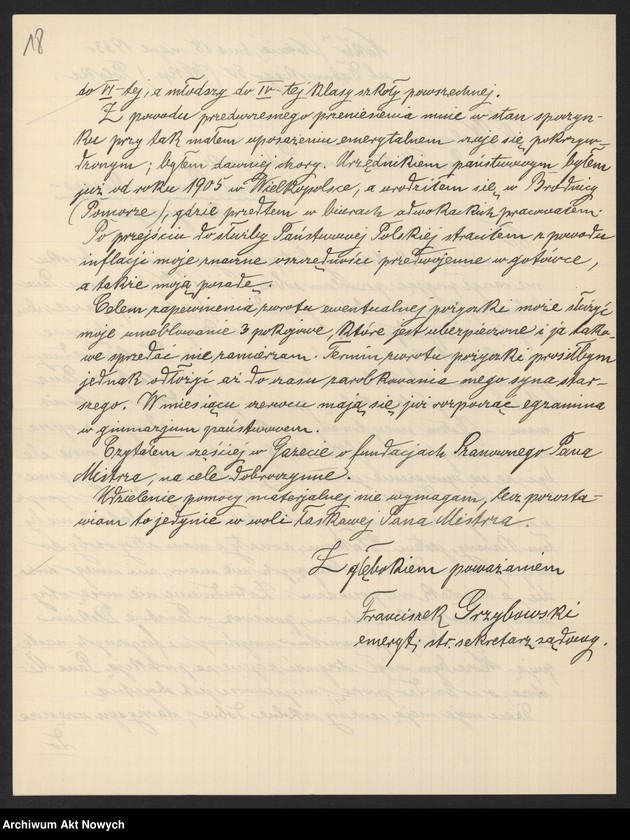 18
do VI-tej, a młodszy do IV-tej klasy szkoły powszechnej.
Z powodu przedwczesnego przeniesienia mnie w stan spoczyn-
ku przy tak małem uposażeniu emerytalnem czuję się pokrzyw-
dzonym; byłem dawniej chory. Urzędnikiem państwowym byłem
już od roku 1905 w Wielkopolsce, a urodziłem się w Brodnicy
(Pomorze), gdzie przedtem w biurach adwokackich pracowałem.
Po przejściu do służby Państwowej Polskiej straciłem z powodu
inflacji moje znaczne oszczędności przedwojenne w gotówce,
a także moją posadę.
Celem zapewnienia zwrotu ewentualnej pożyczki może służyć
moje umeblowanie 3 pokojowe, które jest ubezpieczone i ja tako-
we sprzedać nie zamierzam. Termin zwrotu pożyczki prosiłbym
jednak odłożyć aż do czasu zarobkowania mego syna star-
szego. W miesiącu czerwcu mają się już rozpocząć egzamina
w gimnazjum państwowem.
Czytałem częściej w Gazecie o fundacjach Szanownego Pana
Mistrza, na cele dobroczynne.
Udzielenie pomocy materjalnej nie wymagam, lecz pozosta-
wiam to jedynie w woli łaskawej Pana Mistrza.
Z głębokiem poważaniem
Franciszek Grzybowski
emeryt. st. sekretarz sądowy.
Archiwum Akt Nowych